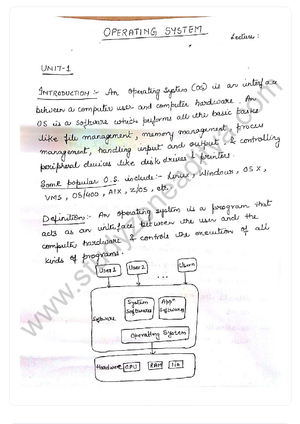 OPERATING SYSTEM
Lecture:
UNIT-1
INTRODUCTION:- An operating system (OS) is an interface
between a computer user and computer hardware. An
OS is a software which performs all the basic tasks
like file management, memory management, process
management, handling input and output & controlling
peripheral devices like disk drives & printers.
Some popular O.S. include:- Linux, Windows, OS X,
VMS, OS/400, AIX, z/OS, etc.
Definition:- An operating system is a program that
acts as an interface between the user and the
computer hardware & controls the execution of all
kinds of programs.
User1 User2 ... Usern
System Softwares Appⁿ Softwares
Software
Operating System
Hardware CPU RAM I/O
www.studyzoneaditya.com